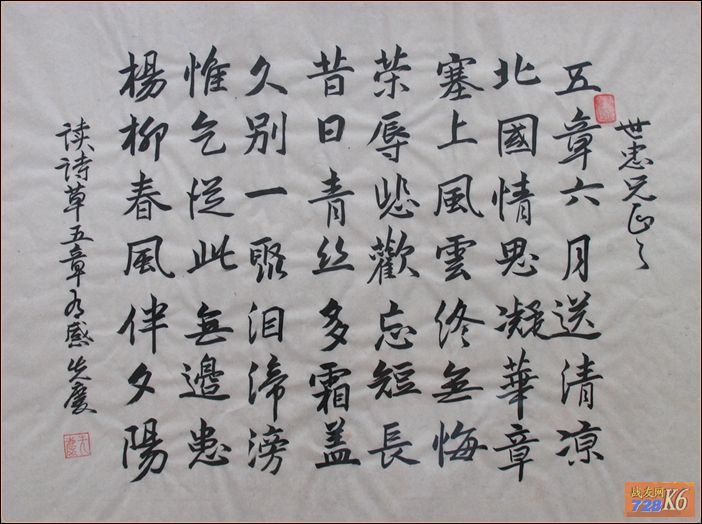 世忠兄正之
五章六月送清凉
北國情思凝華章
塞上風雲終無悔
荣辱悲歡忘短長
昔日青丝多霜盖
久别一聚泪渧滂
惟乞從此無邊患
楊柳春風伴夕陽
读诗草五章有感先慶
战友网
728K6